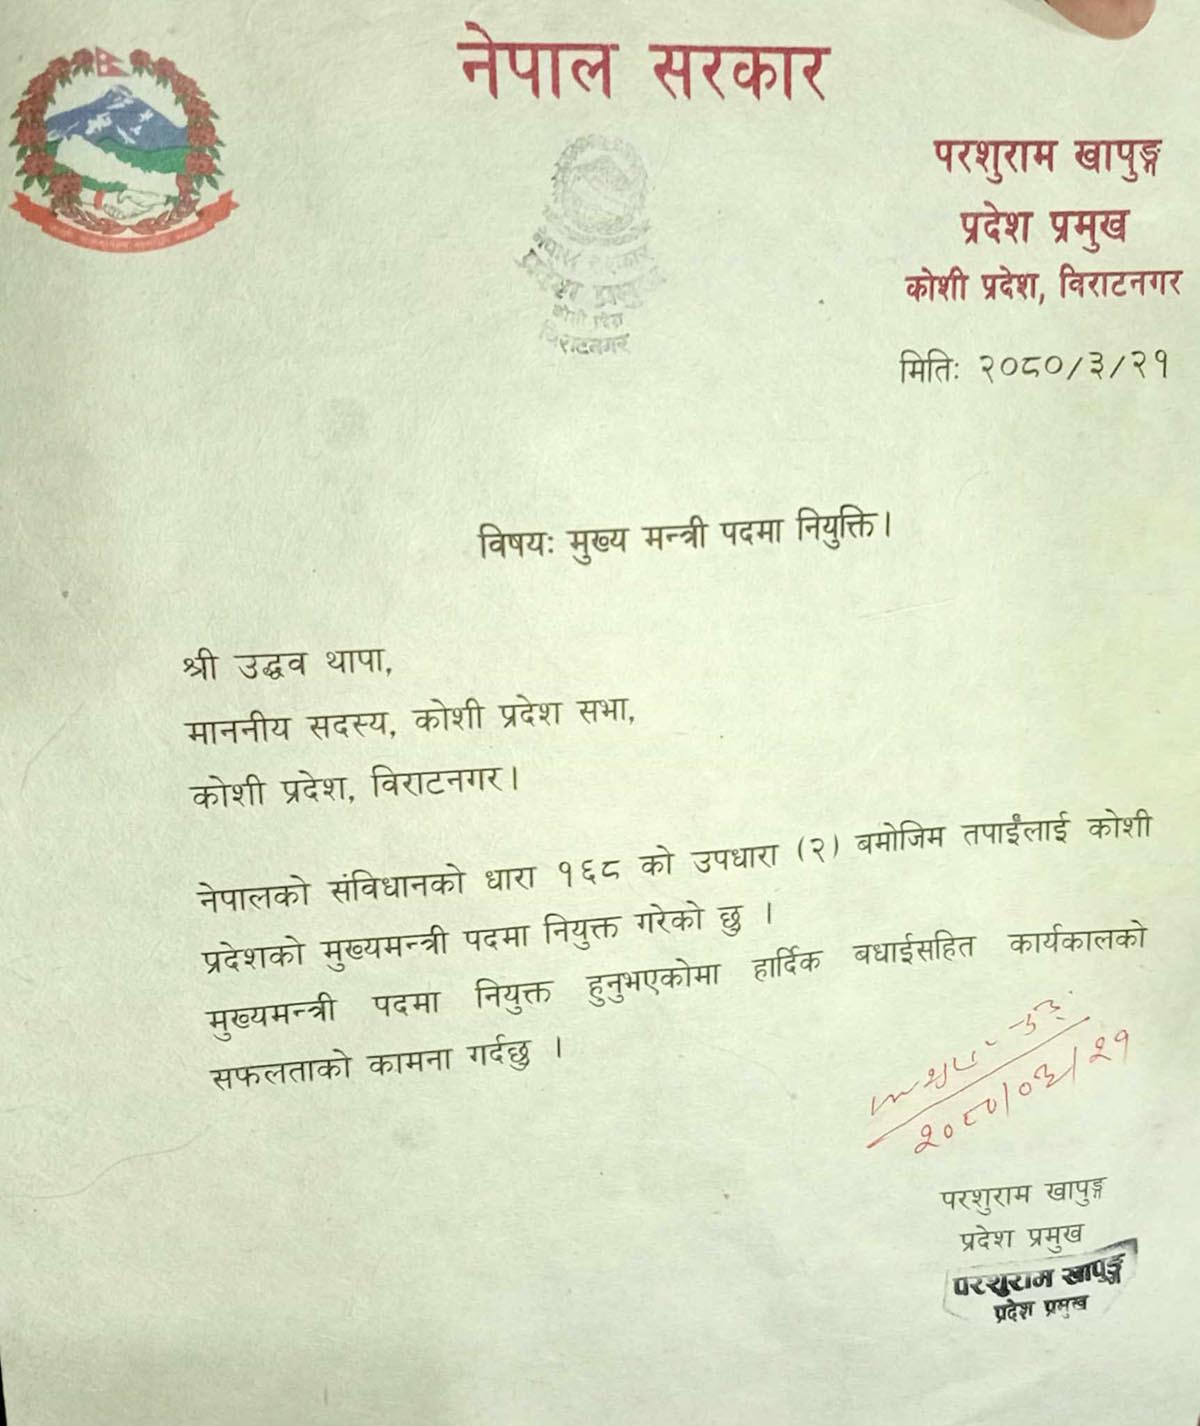 नेपाल सरकार
परशुराम खापुङ्ग
प्रदेश प्रमुख
कोशी प्रदेश, विराटनगर
नेपाल सरकार
प्रदेश प्रमुख
कोशी प्रदेश
विराटनगर
मितिः २०८०/३/२१
विषयः मुख्य मन्त्री पदमा नियुक्ति।
श्री उद्धव थापा,
माननीय सदस्य, कोशी प्रदेश सभा,
कोशी प्रदेश, विराटनगर।
नेपालको संविधानको धारा १६८ को उपधारा (२) बमोजिम तपाईंलाई कोशी
प्रदेशको मुख्यमन्त्री पदमा नियुक्त गरेको छु ।
मुख्यमन्त्री पदमा नियुक्त हुनुभएकोमा हार्दिक बधाईसहित कार्यकालको
सफलताको कामना गर्दछु ।
२०८०/०३/२१
परशुराम खापुङ्ग
प्रदेश प्रमुख
परशुराम खापुङ्ग
प्रदेश प्रमुख